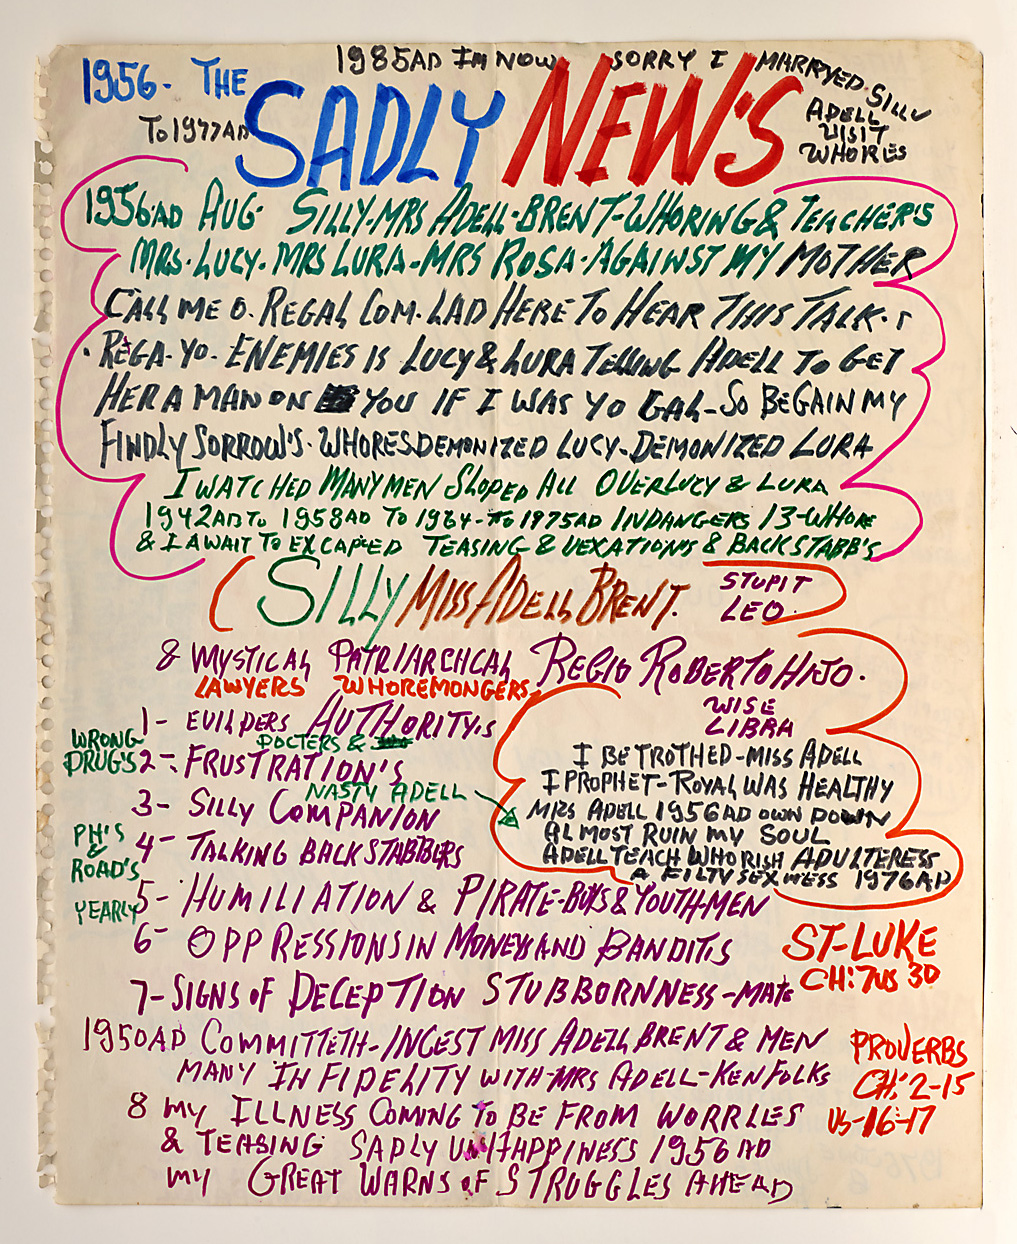 1985AD IM NOW SORRY I MARRYED SILLY
ADELL
VISIT
WHORES
1956- THE
TO 1977AD
SADLY NEW'S
1956AD AUG· SILLY-MRS ADELL-BRENT-WHORING & TEACHER'S
MRS·LUCY·MRS LURA-MRS ROSA·AGAINST MY MOTHER
CALL ME O. REGAL COM. LAD HERE TO HEAR THIS TALK·
REGA-YO· ENEMIES IS LUCY & LURA TELLING ADELL TO GET
HER A MAN ON YOU IF I WAS YO GAL-SO BEGAIN MY
FINDLY SORROW'S·WHORESDEMONIZED LUCY-DEMONIZED LURA
I WATCHED MANY MEN SLOPED ALL OVER LUCY & LURA
1942AD TO 1958AD TO 1964-TO 1975AD INDANGERS 13-WHORE
& I AWAIT TO EXCAPED TEASING & VEXATIONS & BACKSTABB'S
SILLY MISS ADELL BRENT.
STUPIT
LEO
& MYSTICAL PATRIARCHCAL REGIO ROBERTO HIJO.
LAWYERS WHOREMONGERS
WISE
LIBRA
1- EVILDERS AUTHORITY'S
DOCTERS &
WRONG
DRUG'S
2-FRUSTRATION'S
NASTY ADELL
3- SILLY COMPANION
PH'S
&
ROAD'S
4- TALKING BACKSTABBERS
I BETROTHED-MISS ADELL
I PROPHET-ROYAL WAS HEALTHY
MRS ADELL 1956AD OWN DOWN
ALMOST RUIN MY SOUL
ADELL TEACH WHORISH ADULTERESS
A FILTY SEX MESS 1976AD
YEARLY
5- HUMILIATION & PIRATE-BOYS & YOUTH-MEN
6- OPPRESSIONS IN MONEYS AND BANDITS
ST-LUKE
CH:7VS 30
7-SIGNS OF DECEPTION STUBBORNNESS-MATE
1950AD COMMITTETH-INCEST MISS ADELL BRENT & MEN
MANY INFIDELITY WITH-MRS ADELL-KENFOLKS
PROVERBS
CH:2-15
VS-16-17
8 MY ILLNESS COMING TO BE FROM WORRIES
& TEASING SADLY UNHAPPINESS 1956AD
MY GREAT WARNS OF STRUGGLES AHEAD